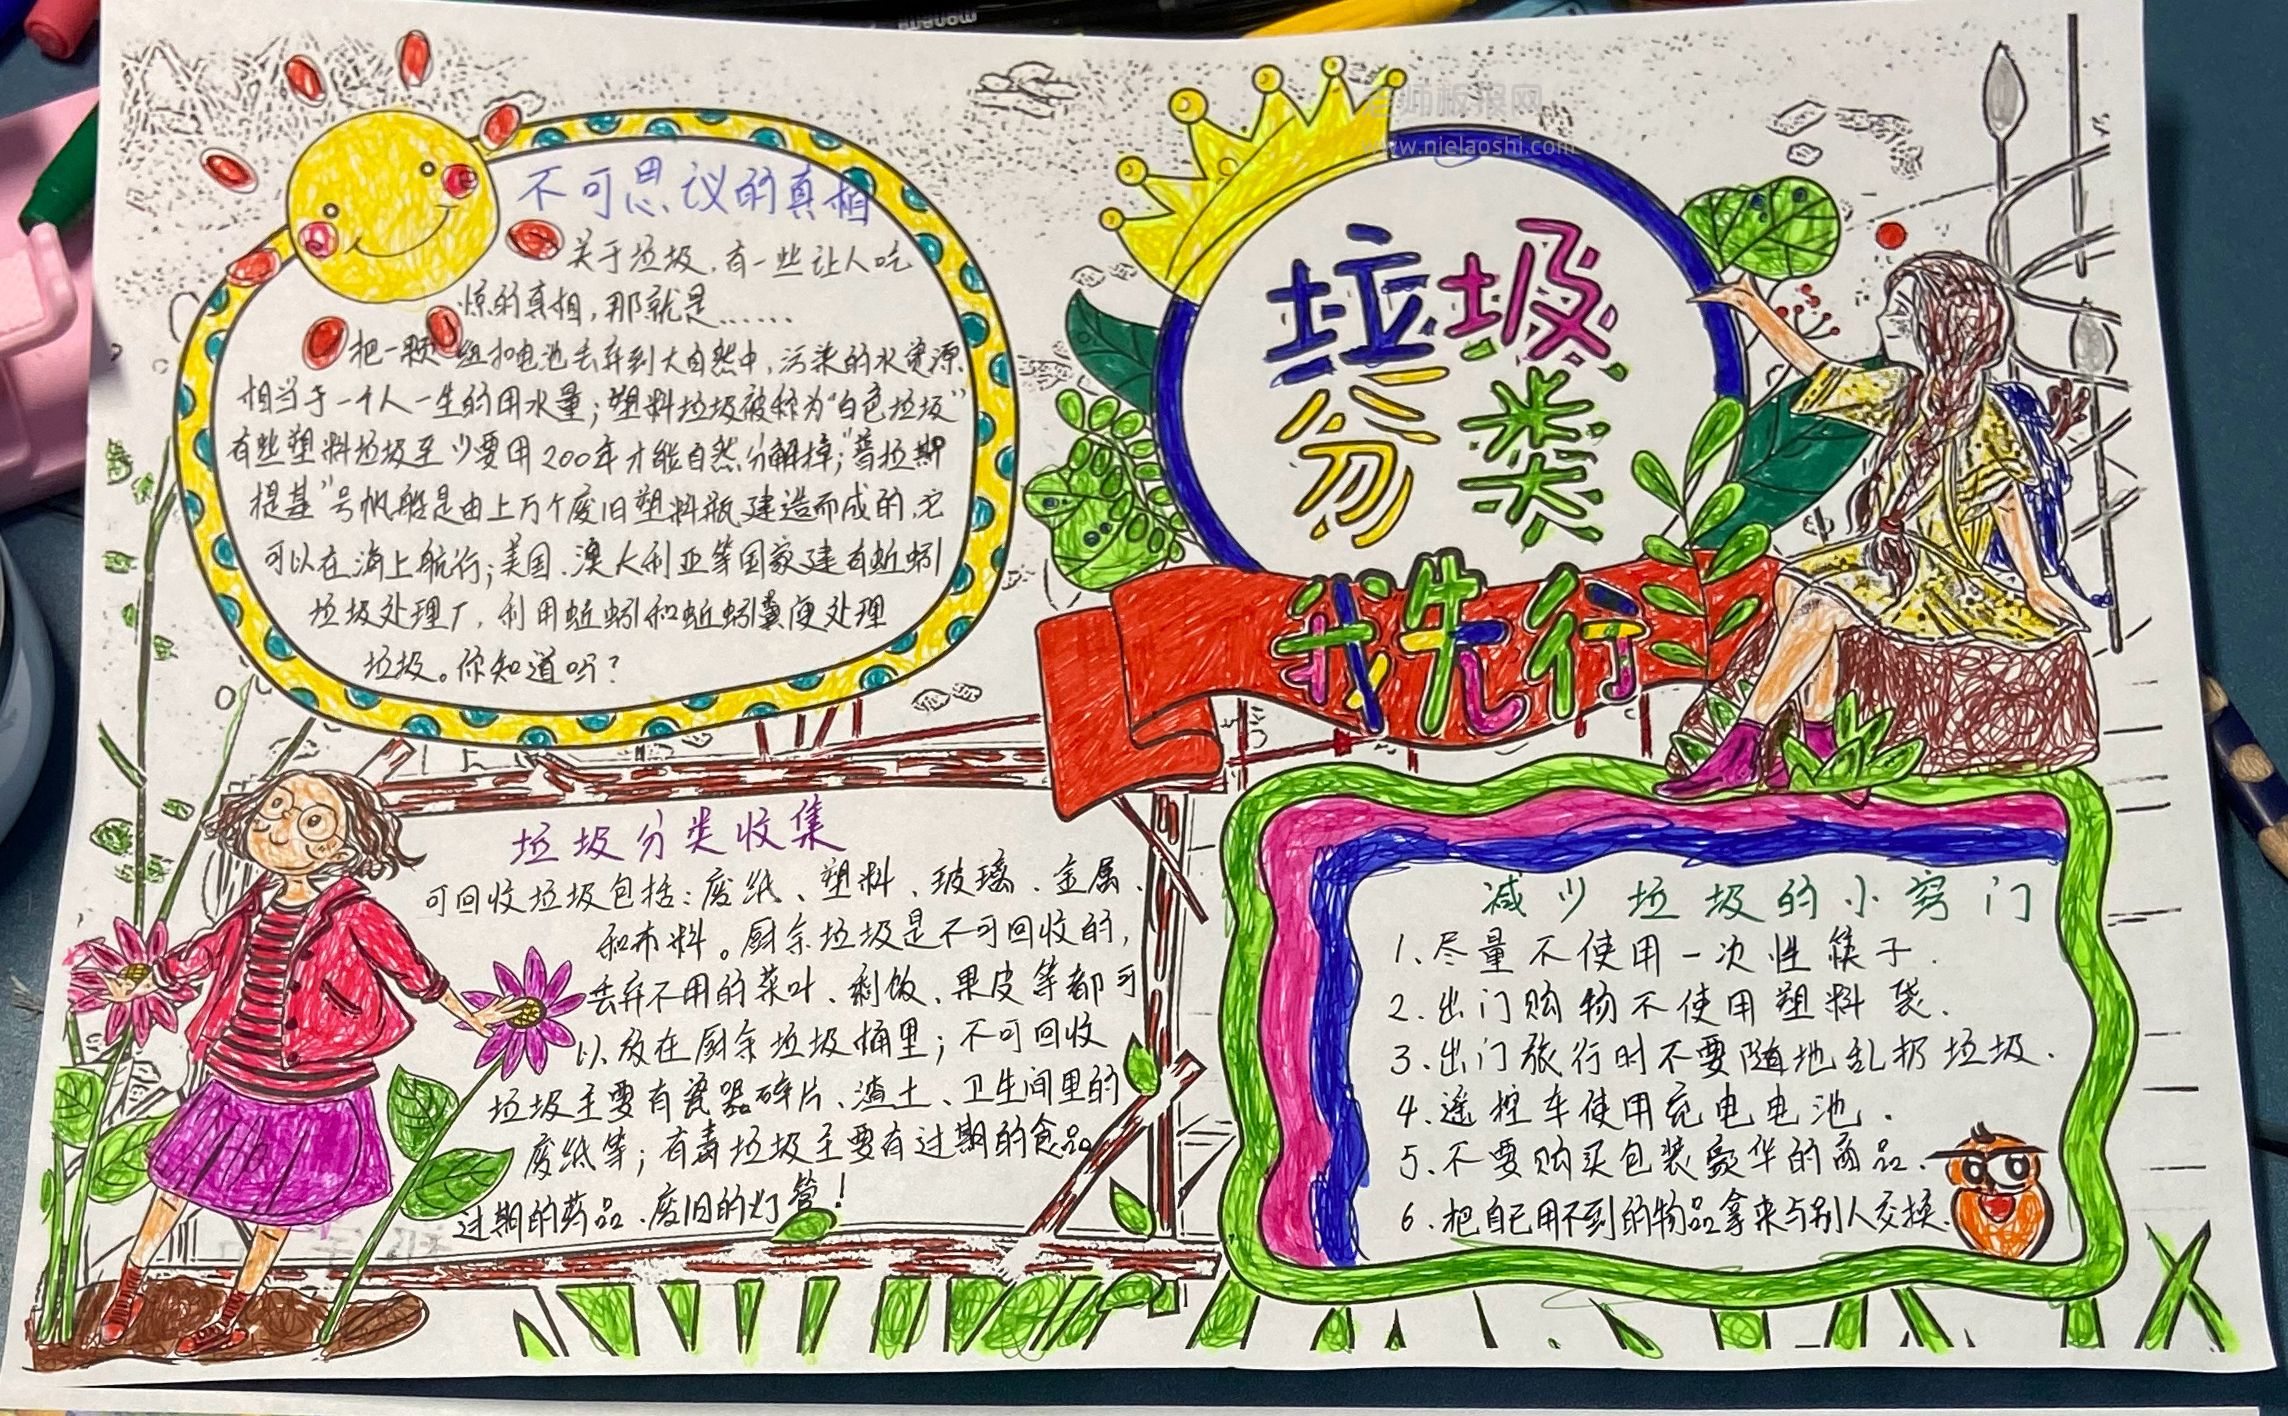 老师板报网
www.nielaoshi.com
不可思议的真相
关于垃圾,有一些让人吃
惊的真相,那就是……
把一颗纽扣电池丢弃到大自然中,污染的水资源
相当于一个人一生的用水量;塑料垃圾被称为“白色垃圾”
有些塑料垃圾至少要用200年才能自然分解掉;“普拉斯
提基”号帆船是由上万个废旧塑料瓶建造而成的,它
可以在海上航行;美国、澳大利亚等国家建有蚯蚓
垃圾处理厂,利用蚯蚓和蚯蚓粪便处理
垃圾。你知道吗?
垃圾
分类
我先行
垃圾分类收集
可回收垃圾包括:废纸、塑料、玻璃、金属、
和布料。厨余垃圾是不可回收的,
丢弃不用的菜叶、剩饭、果皮等都可
以放在厨余垃圾桶里;不可回收
垃圾主要有瓷器碎片、渣土、卫生间里的
废纸等;有毒垃圾主要有过期的食品
过期的药品、废旧的灯管!
减少垃圾的小窍门
1、尽量不使用一次性筷子.
2、出门购物不使用塑料袋.
3、出门旅行时不要随地乱扔垃圾.
4、遥控车使用充电电池.
5、不要购买包装豪华的商品.
6、把自己用不到的物品拿来与别人交换.